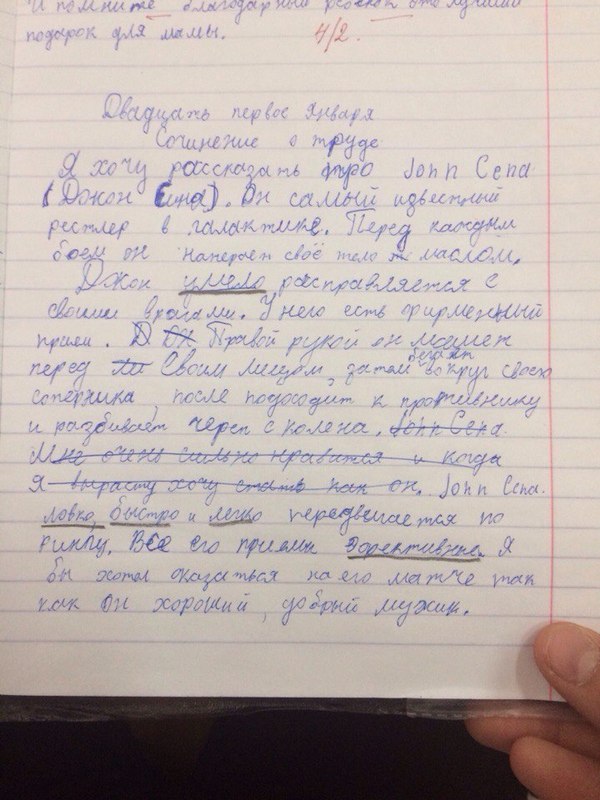 И помните благодарный ребёнок это лучший
подарок для мамы. 4/2.
Двадцать первое января
Сочинение о труде
Я хочу рассказать про John Cena
(Джон Сина). Он самый известный
рестлер в галактике. Перед каждым
боем он наперает своё тело маслом.
Джон умело расправляется с
своими врагами. У него есть фирменный
прием. Правой рукой он машет
перед своим лицом, затем бегает вокруг своего
соперника, после подосодит к противнику
и разбивает череп с колена. John Cena.
Мне очень сильно нравится и когда
Я вырасту хочу стать как он. John Cena.
ловко, быстро и легко передвигается по
рингу. Все его приемы эфективные. Я
бы хотел оказаться на его матче так
как он хороший, добрый мужик.